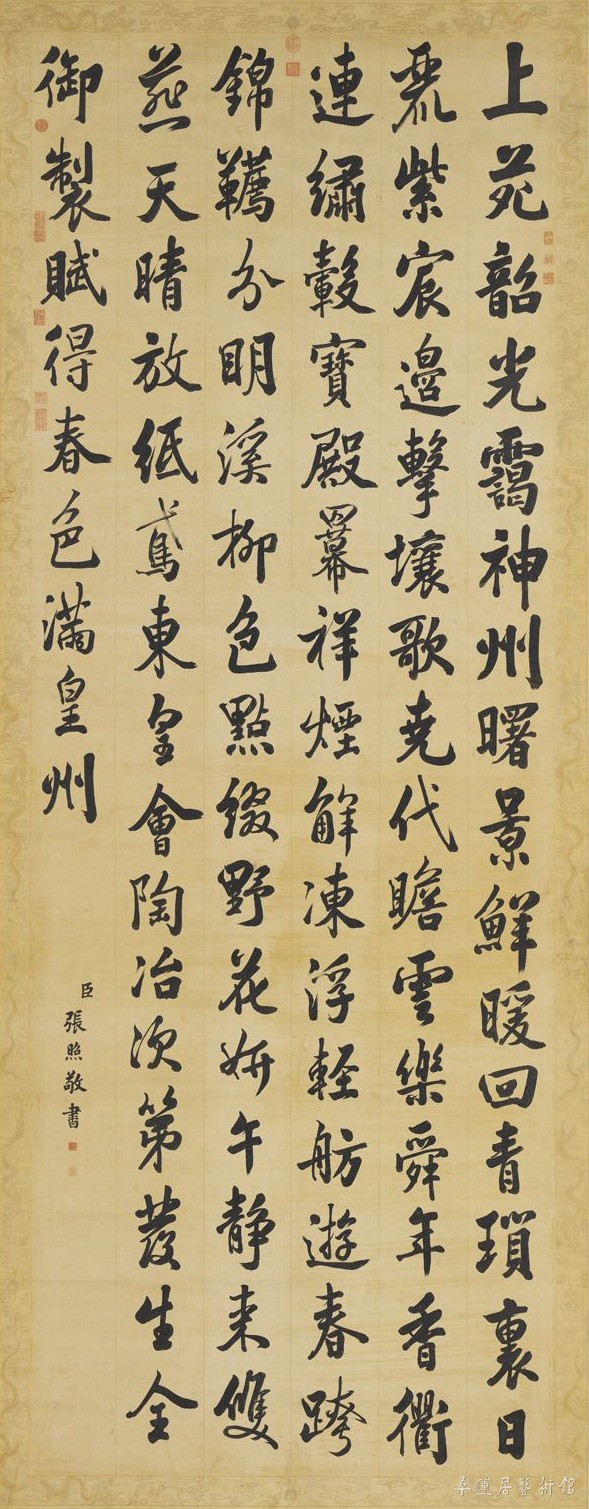 上苑韶光靄神州曙景鮮暖回青瑣裏日
麗紫宸邊擊壤歌堯代瞻雲樂舜年香衢
連繡轂寶殿羃祥煙解凍浮輕舫遊春跨
錦韉分明溪柳色點綴野花妍午靜來雙
燕天晴放紙鳶東皇會陶冶次第發生全
御製賦得春色滿皇州
臣張照敬書
桑蓮居藝術館